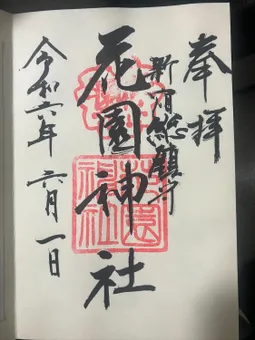 奉拝
新宿総鎮守
花園神社
令和六年六月一日